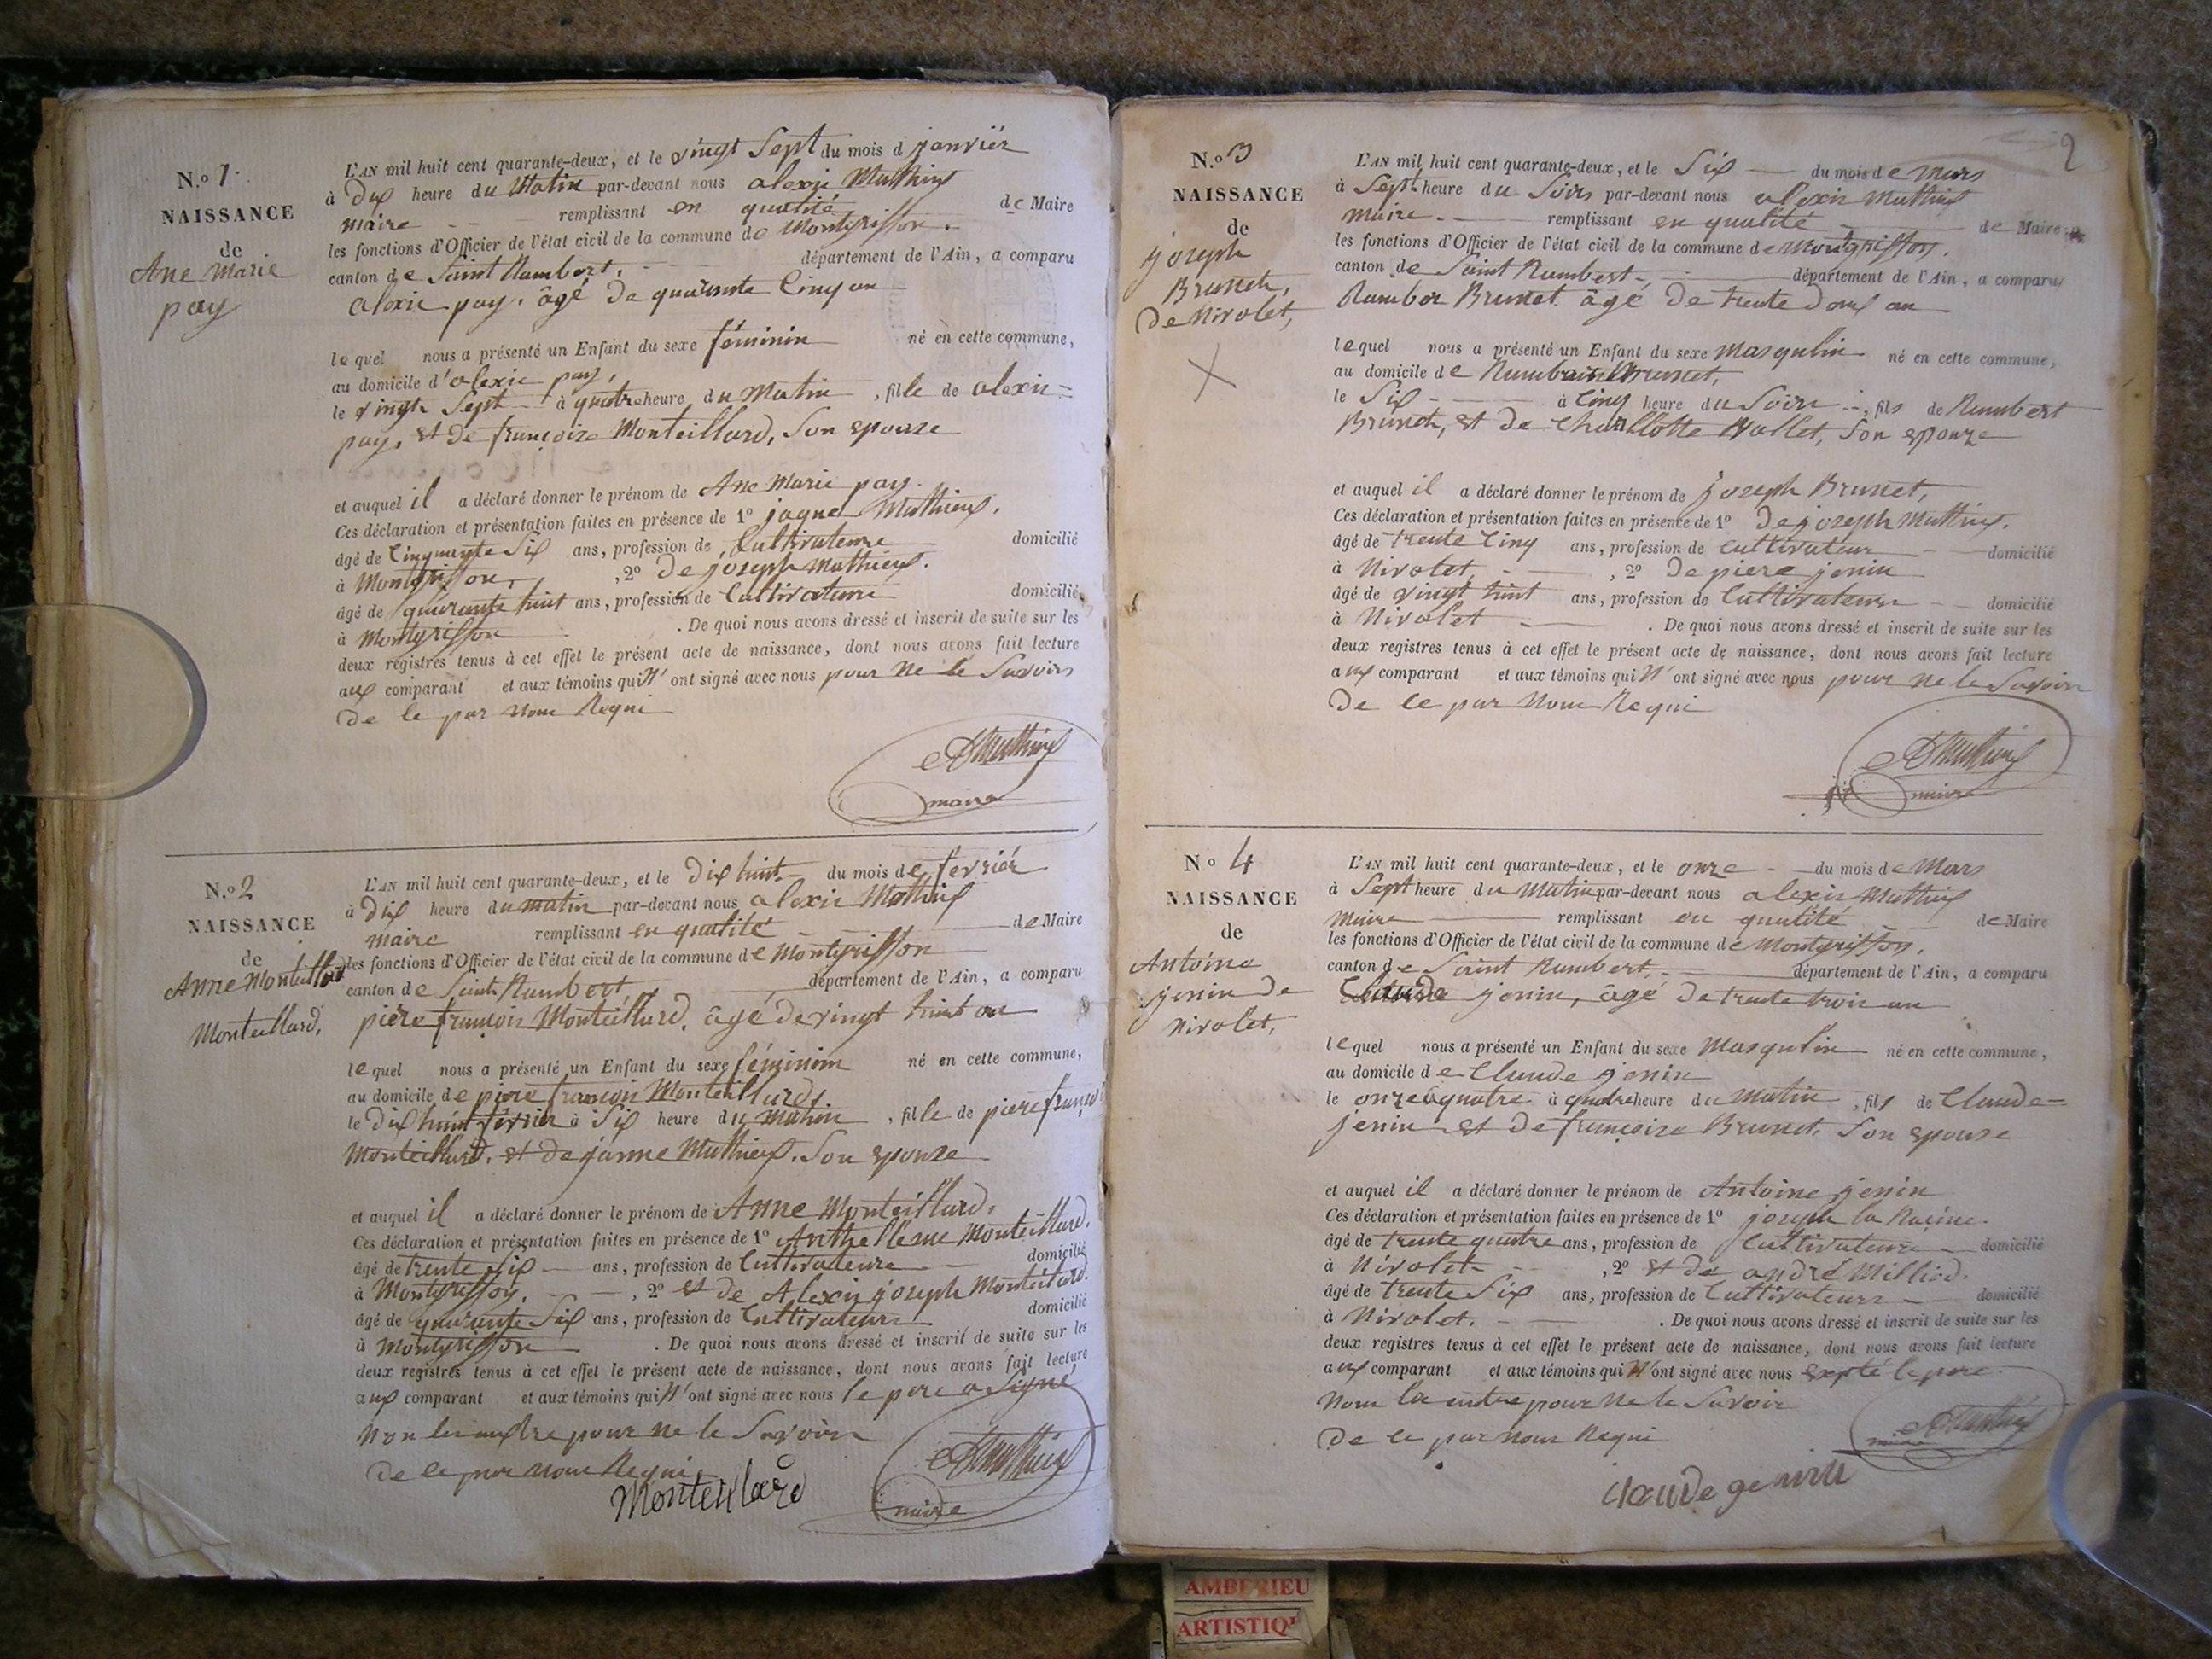 N.o 1.
NAISSANCE
de
Ane Marie
pay
L'AN mil huit cent quarante-deux, et le vingt Sept du mois d janvier
à Dix heure du Matin par-devant nous alexis Mathieux
maire remplissant en qualité de Maire
les fonctions d'Officier de l'état civil de la commune de Montgriffon.
canton de Saint Rambert. département de l'Ain, a comparu
alexis pay. âgé de quarante Cinq an
lequel nous a présenté un Enfant du sexe féminin né en cette commune,
au domicile d'alexis pay,
le vingt Sept à quatre heure du Matin, fille de alexis=
pay, et de françoise Monteillard, Son epouze
et auquel il a déclaré donner le prénom de Ane Marie pay.
Ces déclaration et présentation faites en présence de 1o jaque Mathieux.
âgé de Cinquante Six ans, profession de Cultivateure domicilié
à Montgriffon, , 2o De joseph Mathieux.
âgé de quarante huit ans, profession de Cultivateure domicilié
à Montgriffon . De quoi nous avons dressé et inscrit de suite sur les
deux registres tenus à cet effet le présent acte de naissance, dont nous avons fait lecture
aux comparant et aux témoins qui N'ont signé avec nous pour ne le Savoirs
De le par nous Requi
AMathieux
maire
N.o 2
NAISSANCE
de
Anne Monteillard
Monteillard,
L'AN mil huit cent quarante-deux, et le Dix huit du mois de fevrier
à dix heure du matin par-devant nous alexis Mathieux
maire remplissant en qualité de Maire
les fonctions d'Officier de l'état civil de la commune de Montgriffon
canton de Saint Rambert département de l'Ain, a comparu
piere françois Monteillard. âgé de vingt huit an
lequel nous a présenté un Enfant du sexe féminim né en cette commune,
au domicile de piere françois Monteillard,
le Dix huit fevrier à Six heure du matin, fille de piere françois
Monteillard. et de janne Mathieux. Son epouze
et auquel il a déclaré donner le prénom de Anne Monteillard,
Ces déclaration et présentation faites en présence de 1o Anthelleme Monteillard.
âgé de trente Six ans, profession de Cultivateure domicilié
à Montgriffon. , 2o et de Alexis joseph Monteillard.
âgé de quarante Six ans, profession de Cultivateure domicilié
à Montgriffon . De quoi nous avons dressé et inscrit de suite sur les
deux registres tenus à cet effet le présent acte de naissance, dont nous avons fait lecture
aux comparant et aux témoins qui N'ont signé avec nous le pere a Signé
Non les autre pour ne le Savoirs
De le par nous Requi
Monteillard
AMathieux
maire
2
N.o 3
NAISSANCE
de
joseph
Brunet,
De Nivolet,
L'AN mil huit cent quarante-deux, et le Six du mois de Mars
à Sept heure du Soirs par-devant nous alexis Mathieux
Maire remplissant en qualité de Maire
les fonctions d'Officier de l'état civil de la commune de Montgriffon.
canton de Saint Rambert. département de l'Ain, a comparu
Rambert Brunet âgé de trente doux an
lequel nous a présenté un Enfant du sexe Masqulin né en cette commune,
au domicile de Rambert Brunet,
le Six à Cinq heure du Soire, fils de Rambert
Brunet, et de Charllotte Vallet, Son epouze
et auquel il a déclaré donner le prénom de joseph Brunet,
Ces déclaration et présentation faites en présence de 1o De joseph Mathieux.
âgé de trente Cinq ans, profession de Cultivateur domicilié
à Nivolet , 2o De piere jenin
âgé de vingt huit ans, profession de Cultivateure domicilié
à Nivolet . De quoi nous avons dressé et inscrit de suite sur les
deux registres tenus à cet effet le présent acte de naissance, dont nous avons fait lecture
aux comparant et aux témoins qui N'ont signé avec nous pour ne le Savoir
De le par nous Requi
AMathieux
maire
No 4
NAISSANCE
de
Antoine
jenin de
Nivolet,
L'AN mil huit cent quarante-deux, et le onze du mois de Mars
à Sept heure du Matin par-devant nous alexis Mathieux
Maire remplissant en qualité de Maire
les fonctions d'Officier de l'état civil de la commune de Montgriffon,
canton de Saint Rambert, département de l'Ain, a comparu
Claude jenin, âgé de trente trois an
lequel nous a présenté un Enfant du sexe Masqulin né en cette commune,
au domicile de Claude jenin
le onze à quatre heure du matin, fils de Claude=
jenin et de françoise Brunet, Son epouse
et auquel il a déclaré donner le prénom de Antoine jenin
Ces déclaration et présentation faites en présence de 1o joseph la Racine.
âgé de trente quatre ans, profession de Cultivateure domicilié
à Nivolet , 2o et de andré Milliod.
âgé de trente Six ans, profession de Cultivateure domicilié
à Nivolet. . De quoi nous avons dressé et inscrit de suite sur les
deux registres tenus à cet effet le présent acte de naissance, dont nous avons fait lecture
aux comparant et aux témoins qui N'ont signé avec nous Expté le pere
Nom la autre pour ne le Savoir
De le par nous Requi
AMathieux
maire
claude genin
AMBERIEU
ARTISTIQ